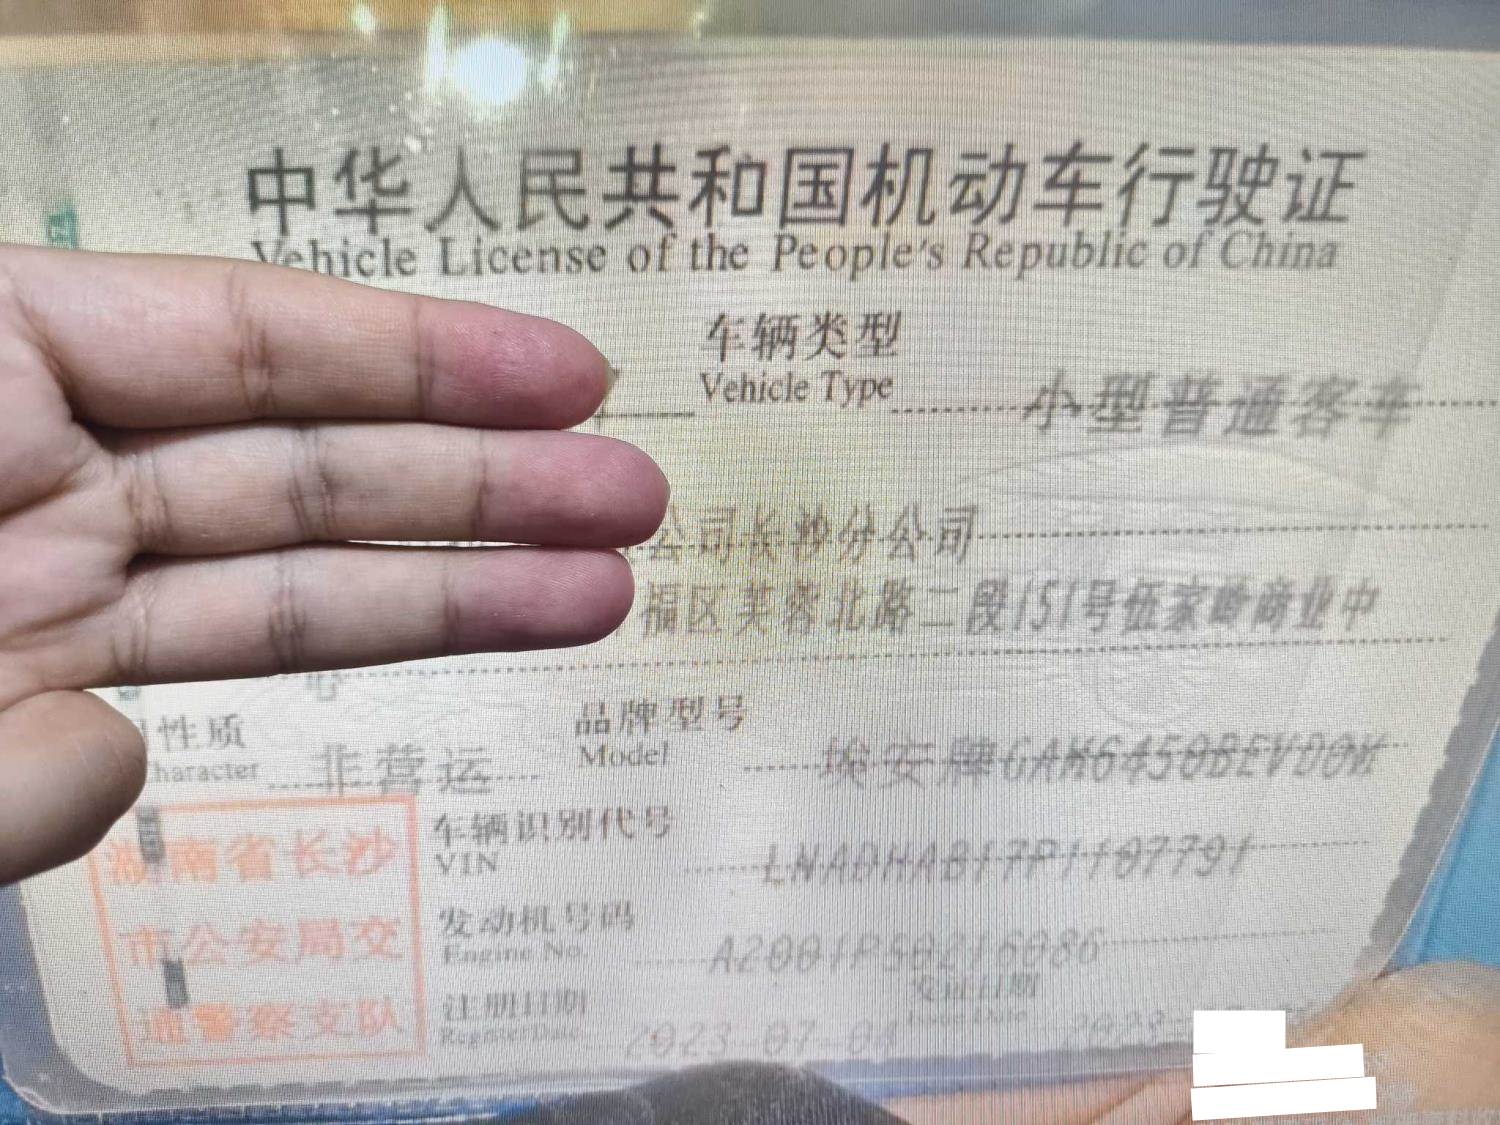 中华人民共和国机动车行驶证
Vehicle License of the People's Republic of China
车辆类型
Vehicle Type
小型普通客车
公司长沙分公司
福区芙蓉北路二段151号伍家岭商业中
心
性质
haracter
非营运
品牌型号
Model
埃安牌GAM6450BEVD0W
车辆识别代号
VIN
LNADHAB17P1107791
发动机号码
Engine No.
A2001P50216086
注册日期
Register Date
2023-07-04
发证日期
Issue Date
2023-
湖南省长沙
市公安局交
通警察支队